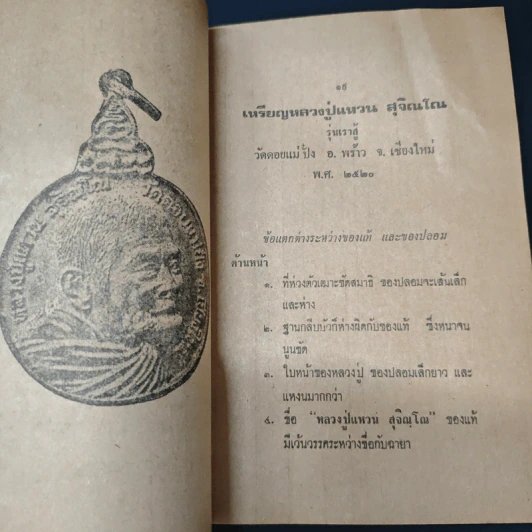 ๑๕
เหรียญหลวงปู่แหวน สุจิณโณ
รุ่นเราสู้
วัดดอยแม่ปั๋ง อ. พร้าว จ. เชียงใหม่
พ.ศ. ๒๕๒๐
ข้อแตกต่างระหว่างของแท้ และของปลอม
ด้านหน้า
๑. ที่ห่วงตัวเฒาะขัดสมาธิ ของปลอมจะเส้นเล็ก
และห่าง
๒. ฐานกลีบบัวก็ห่างผิดกับของแท้ ซึ่งหนาจน
นูนชัด
๓. ใบหน้าของหลวงปู่ ของปลอมเล็กยาว และ
แหงนมากกว่า
๔. ชื่อ "หลวงปู่แหวน สุจิณฺโณ" ของแท้
มีเว้นวรรคระหว่างชื่อกับฉายา
หลวงปู่แหวน สุจิณฺโณ